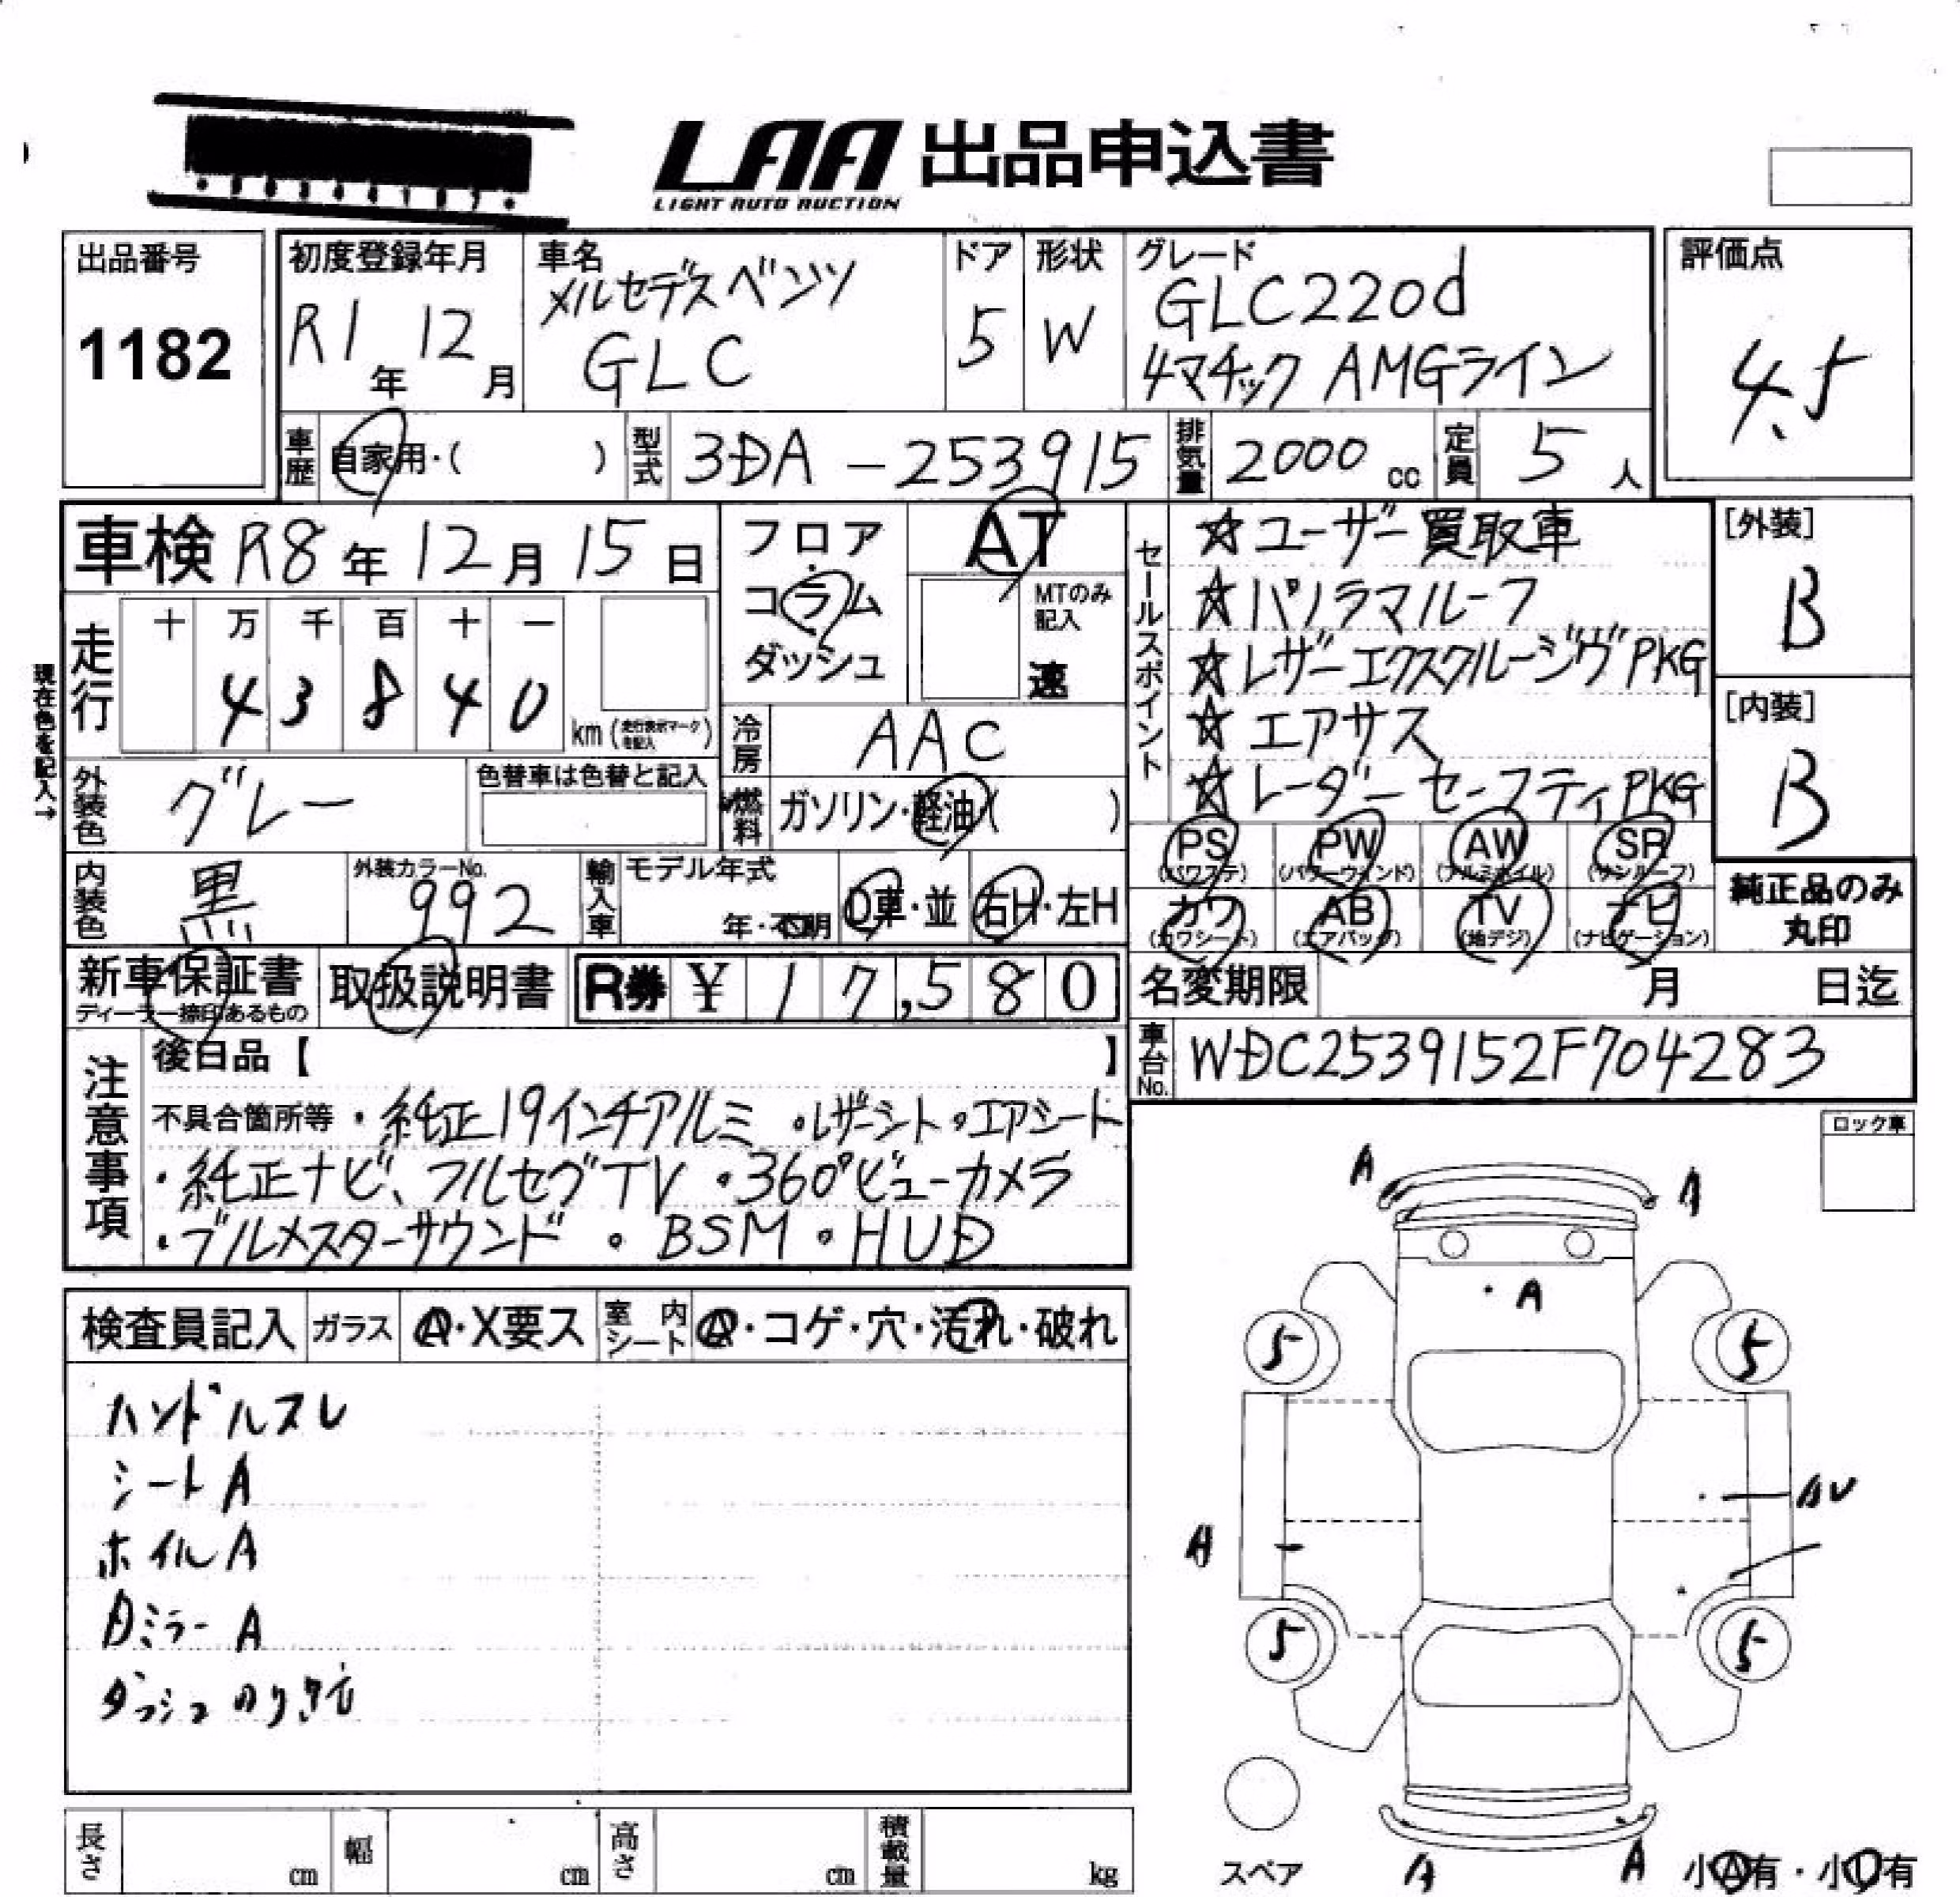 LAA 出品申込書
LIGHT AUTO AUCTION
出品番号
1182
初度登録年月
R1年 12月
車名
メルセデスベンツ
GLC
ドア
5
形状
W
グレード
GLC220d
4マチック AMGライン
評価点
4.5
車歴 自家用・( )
型式 3DA-253915
排気量 2000cc
定員 5人
車検 R8年 12月 15日
フロア・コラム・ダッシュ
AT
MTのみ記入
速
走行
十 万 千 百 十 一
4 3 8 4 0
km (走行表示マークを記入)
現在色を記入→
冷房 AAC
外装色 グレー
色替車は色替と記入
燃料 ガソリン・軽油( )
内装色 黒
外装カラーNo. 992
輸入車 モデル年式
年・不明
D車・並
右H・左H
セールスポイント
☆ユーザー買取車
☆パノラマルーフ
☆レザーエクスクルージヴPKG
☆エアサス
☆レーダーセーフティPKG
[外装]
B
[内装]
B
PS (パワステ) PW (パワーウィンド) AW (アルミホイル) SR (サンルーフ)
カワ (カワシート) AB (エアバッグ) TV (地デジ) ナビ (ナビゲーション)
純正品のみ
丸印
新車保証書
ディーラー捺印あるもの
取扱説明書
R券 ¥ 17,580
名変期限 月 日迄
車台No. WDC2539152F704283
注意事項
後日品【 】
不具合箇所等 ・純正19インチアルミ ・レザーシート ・エアシート
・純正ナビ、フルセグTV ・360°ビューカメラ
・ブルメスターサウンド ・BSM ・HUD
ロック車
検査員記入 ガラス A・X要ス 室内シート A・コゲ・穴・汚れ・破れ
ハンドルスレ
シートA
ホイルA
Dミラー A
ダッシュ
A A
A
5 5
AU
A
5 5
スペア
A A
小A有・小U有
長さ cm 幅 cm 高さ cm 積載量 kg